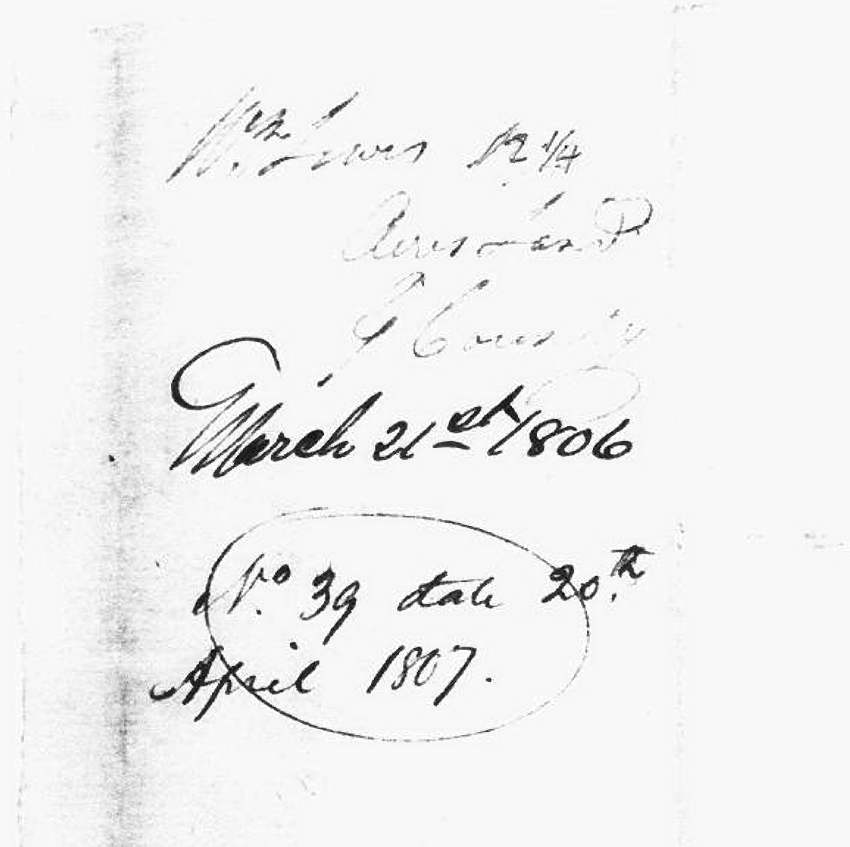 Wm. Lewis 12 1/4
Acres Land
G County
March 21st 1806
No. 39 date 20th.
April 1807.